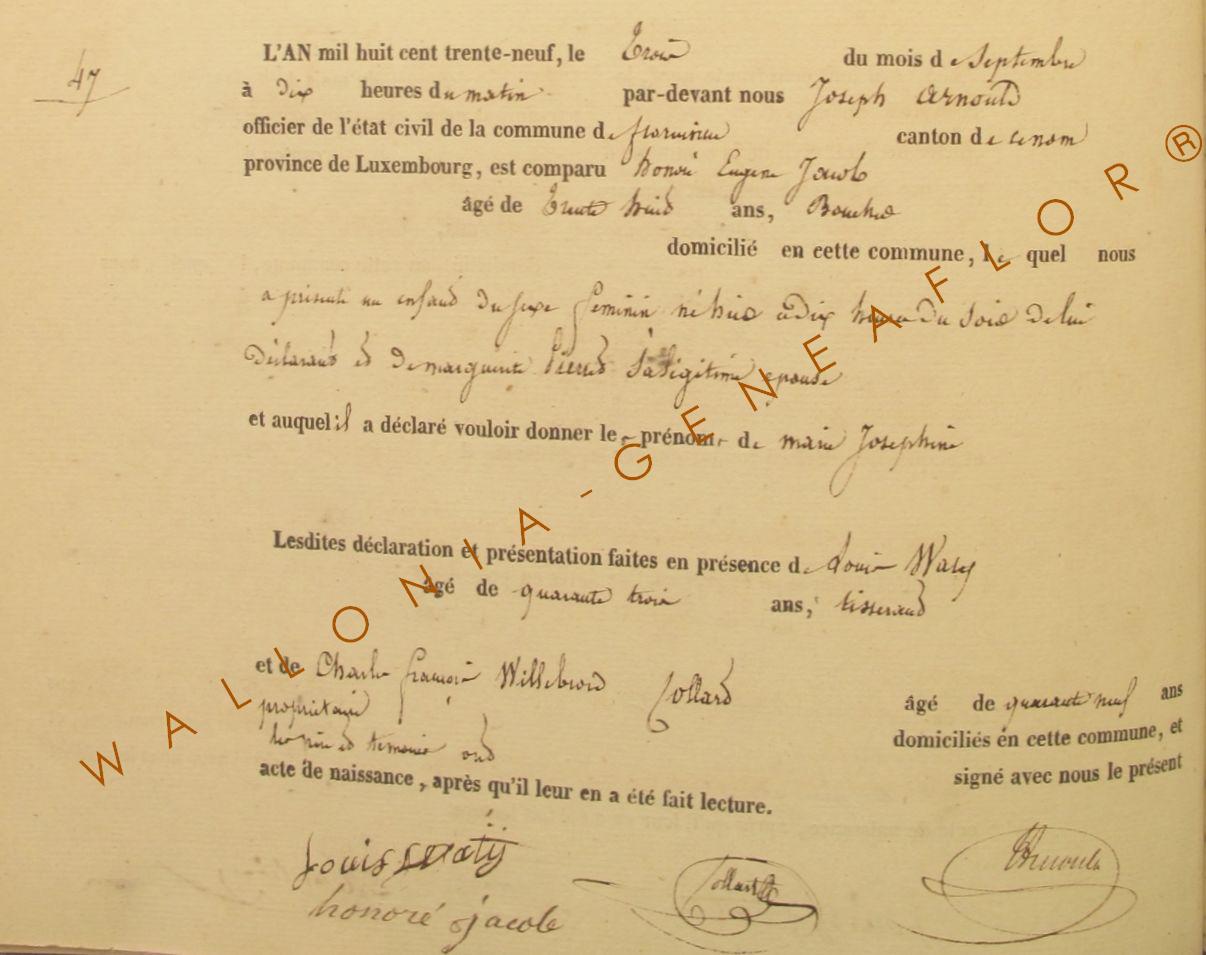 47
L'AN mil huit cent trente-neuf, le Trois du mois de Septembre
à dix heures du matin par-devant nous Joseph Arnould
officier de l'état civil de la commune de canton de
province de Luxembourg, est comparu honoré Eugene Jacob
âgé de Trente huit ans,
domicilié en cette commune, le quel nous
a présenté un enfant du sexe feminin né hier à dix heures du Soir de lui
Déclarant et De marguerite Pierret Sa légitime epouse
et auquel il a déclaré vouloir donner le prénom de marie Josephine
Lesdites déclaration et présentation faites en présence de Louis Waty
âgé de quarante trois ans, tisserand
et de Charles françois Willebrord Collard
âgé de quarante neuf ans
propriétaire
domiciliés en cette commune, et
témoins ont
signé avec nous le présent
acte de naissance, après qu'il leur en a été fait lecture.
Louis Waty
honoré jacob
Collard
Arnould
WALLONIA-GENEAFLOR®